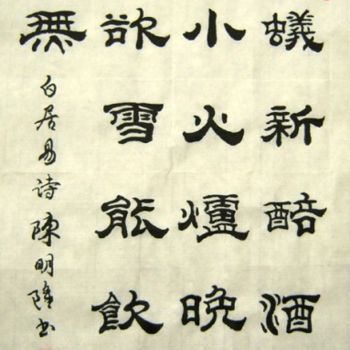 蟻新醅酒
小火爐晚
欲雪能飲
無
白居易詩陳明隆书